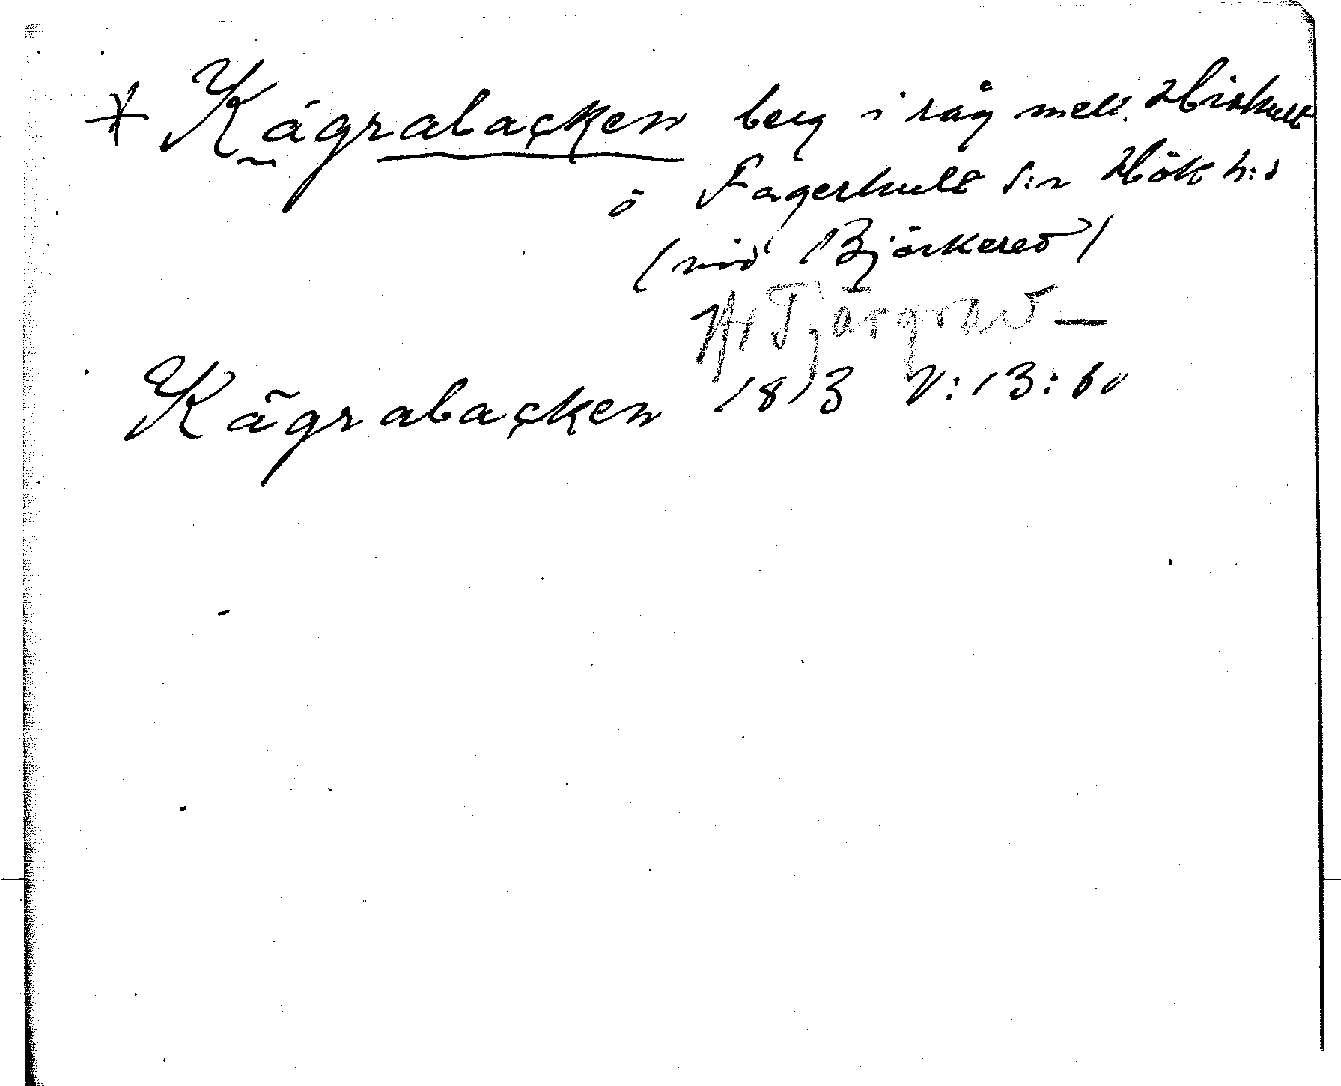 * Kågrabacken berg i råg mell. Hishult
o Fagerhult s:n Hök h:d
(vid Björkered)
Tjärgrav —
Kågrabacken 1813 V:13:60